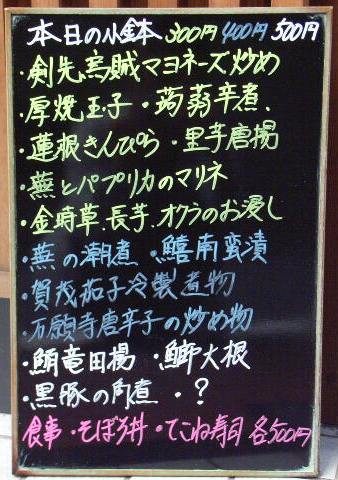 本日の小鉢 300円 400円 500円
・剣先烏賊マヨネーズ炒め
・厚焼玉子 ・蒟蒻辛煮、
・蓮根きんぴら ・里芋唐揚
・蕪とパプリカのマリネ
・金時草、長芋、オクラのお浸し
・蕪の潮煮 ・鱚南蛮漬
・賀茂茄子冷製煮物
・万願寺唐辛子の炒め物
・鯛竜田揚 ・鰤大根
・黒豚の角煮 ・?
食事・そぼろ丼・てこね寿司 各500円